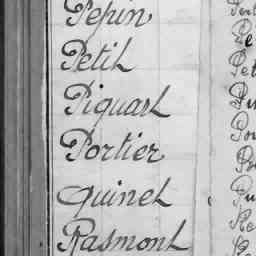 Pepin
Petit
Piquart
Portier
Quinet
Rasmont